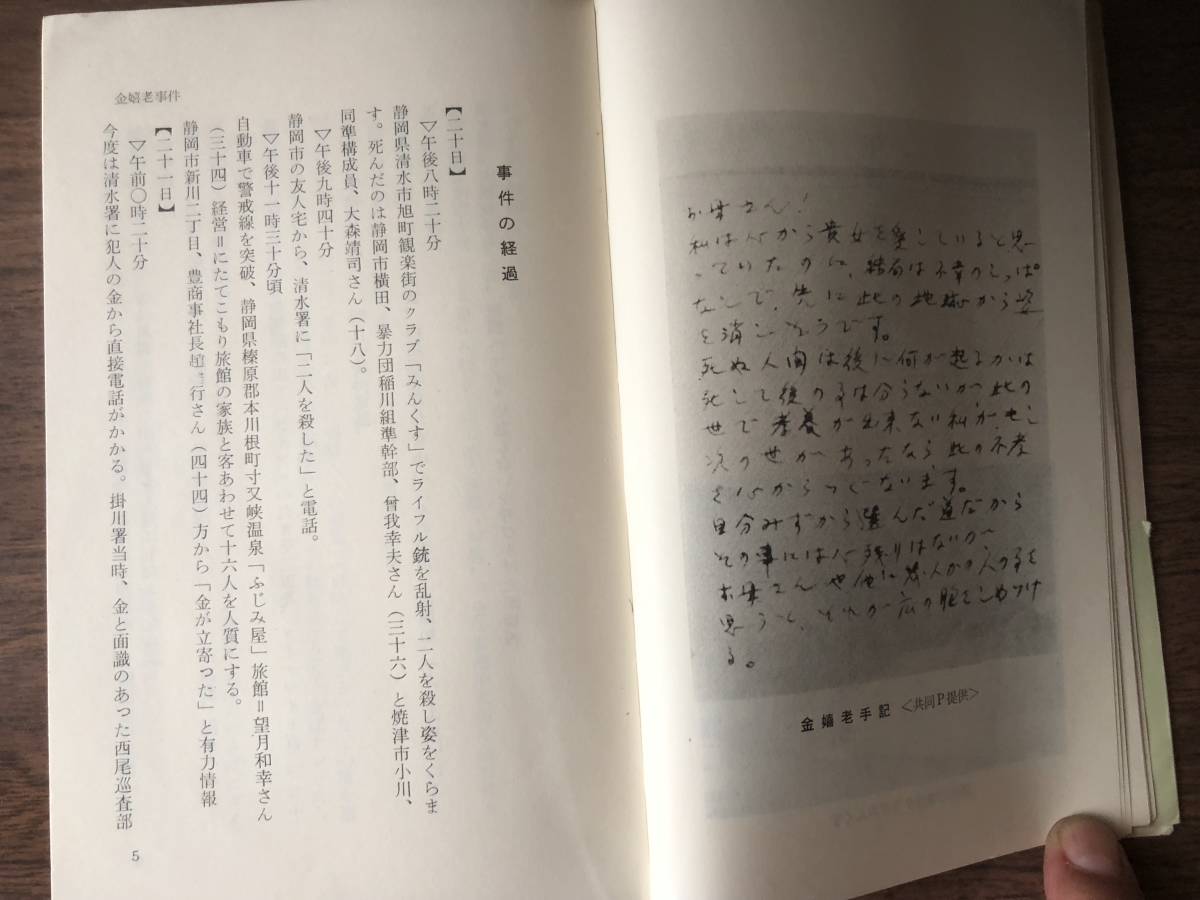 お母さん！
私は心から貴女を愛していると思
っていたのに、結局は不幸のしっぱ
なしで、先に此の地球から姿
を消しそうです。
死ぬ人間は後に何が起るかは
死して後の事は分らないが、此の
世で孝養が出来ない私が、もし
次の世があったなら此の不孝
を心からつぐないます。
自分みずから選んだ道だから
その事には心残りはないが、
お母さんや他に 人かの人の事を
思うと、それが の胸をしめつけ
る。
金嬉老手記〈共同P提供〉
事件の経過
【二十日】
▽午後八時二十分
静岡県清水市旭町観楽街のクラブ「みんくす」でライフル銃を乱射、二人を殺し姿をくらま
す。死んだのは静岡市横田、暴力団稲川組準幹部、曾我幸夫さん（三十六）と焼津市小川、
同準構成員、大森靖司さん（十八）。
▽午後九時四十分
静岡市の友人宅から、清水署に「二人を殺した」と電話。
▽午後十一時三十分頃
自動車で警戒線を突破、静岡県榛原郡本川根町寸又峡温泉「ふじみ屋」旅館＝望月和幸さん
（三十四）経営＝にたてこもり旅館の家族と客あわせて十六人を人質にする。
静岡市新川二丁目、豊商事社長 行さん（四十四）方から「金が立寄った」と有力情報
【二十一日】
▽午前〇時二十分
今度は清水署に犯人の金から直接電話がかかる。掛川署当時、金と面識のあった西尾巡査部
金嬉老事件
5